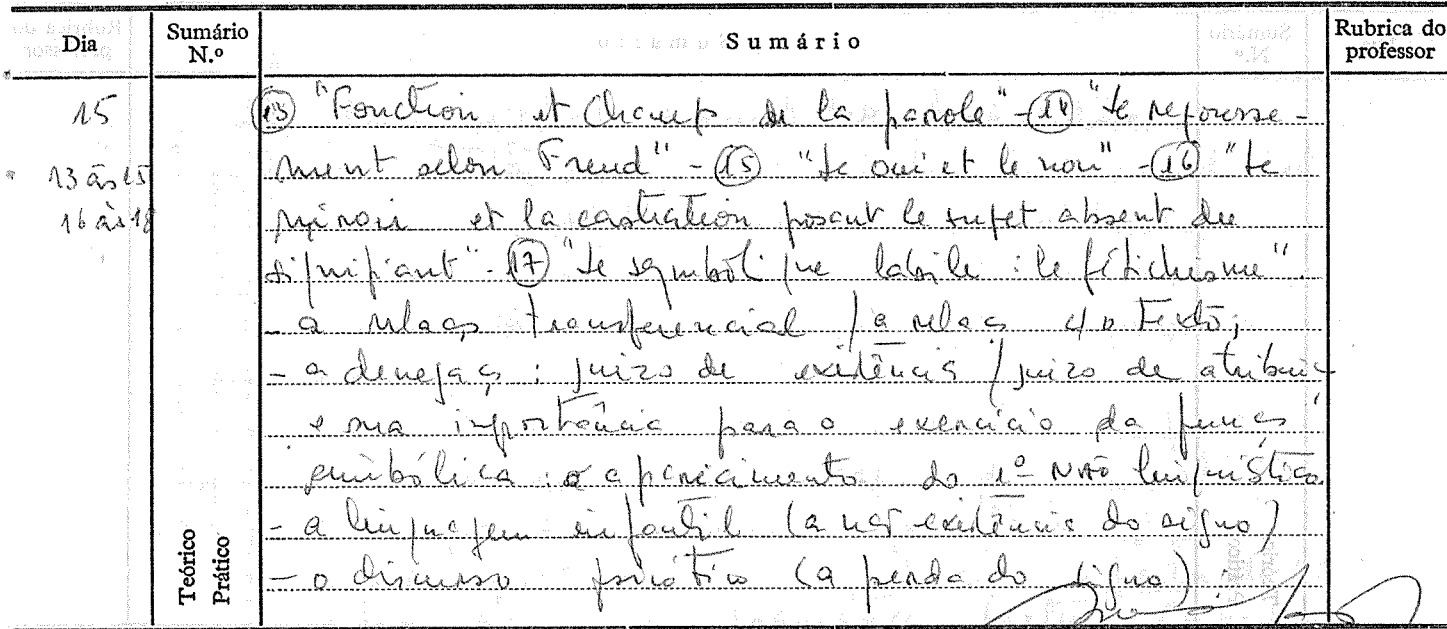 Dia
Sumário N.º
Sumário
Rubrica do professor
15
13 às 15
16 às 18
(13) "Fonction et Champ de la parole" - (14) "Le repousse-
ment selon Freud" - (15) "Le oui et le non" - (16) "Le
miroir et la castration posant le sujet absent du
signifiant". (17) "Le symbolique labile : le fétichisme".
- a relaç transferencial / a relaç c/ o Texto;
- a denegaç : juizo de existência / juizo de atribuiç
e sua importância para o exercício da funç
simbólica : o aparecimento do 1º NÃO linguístico
- a linguagem infantil (a não existência do signo)
- o discurso psicótico (a perda do signo).
Teórico
Prático